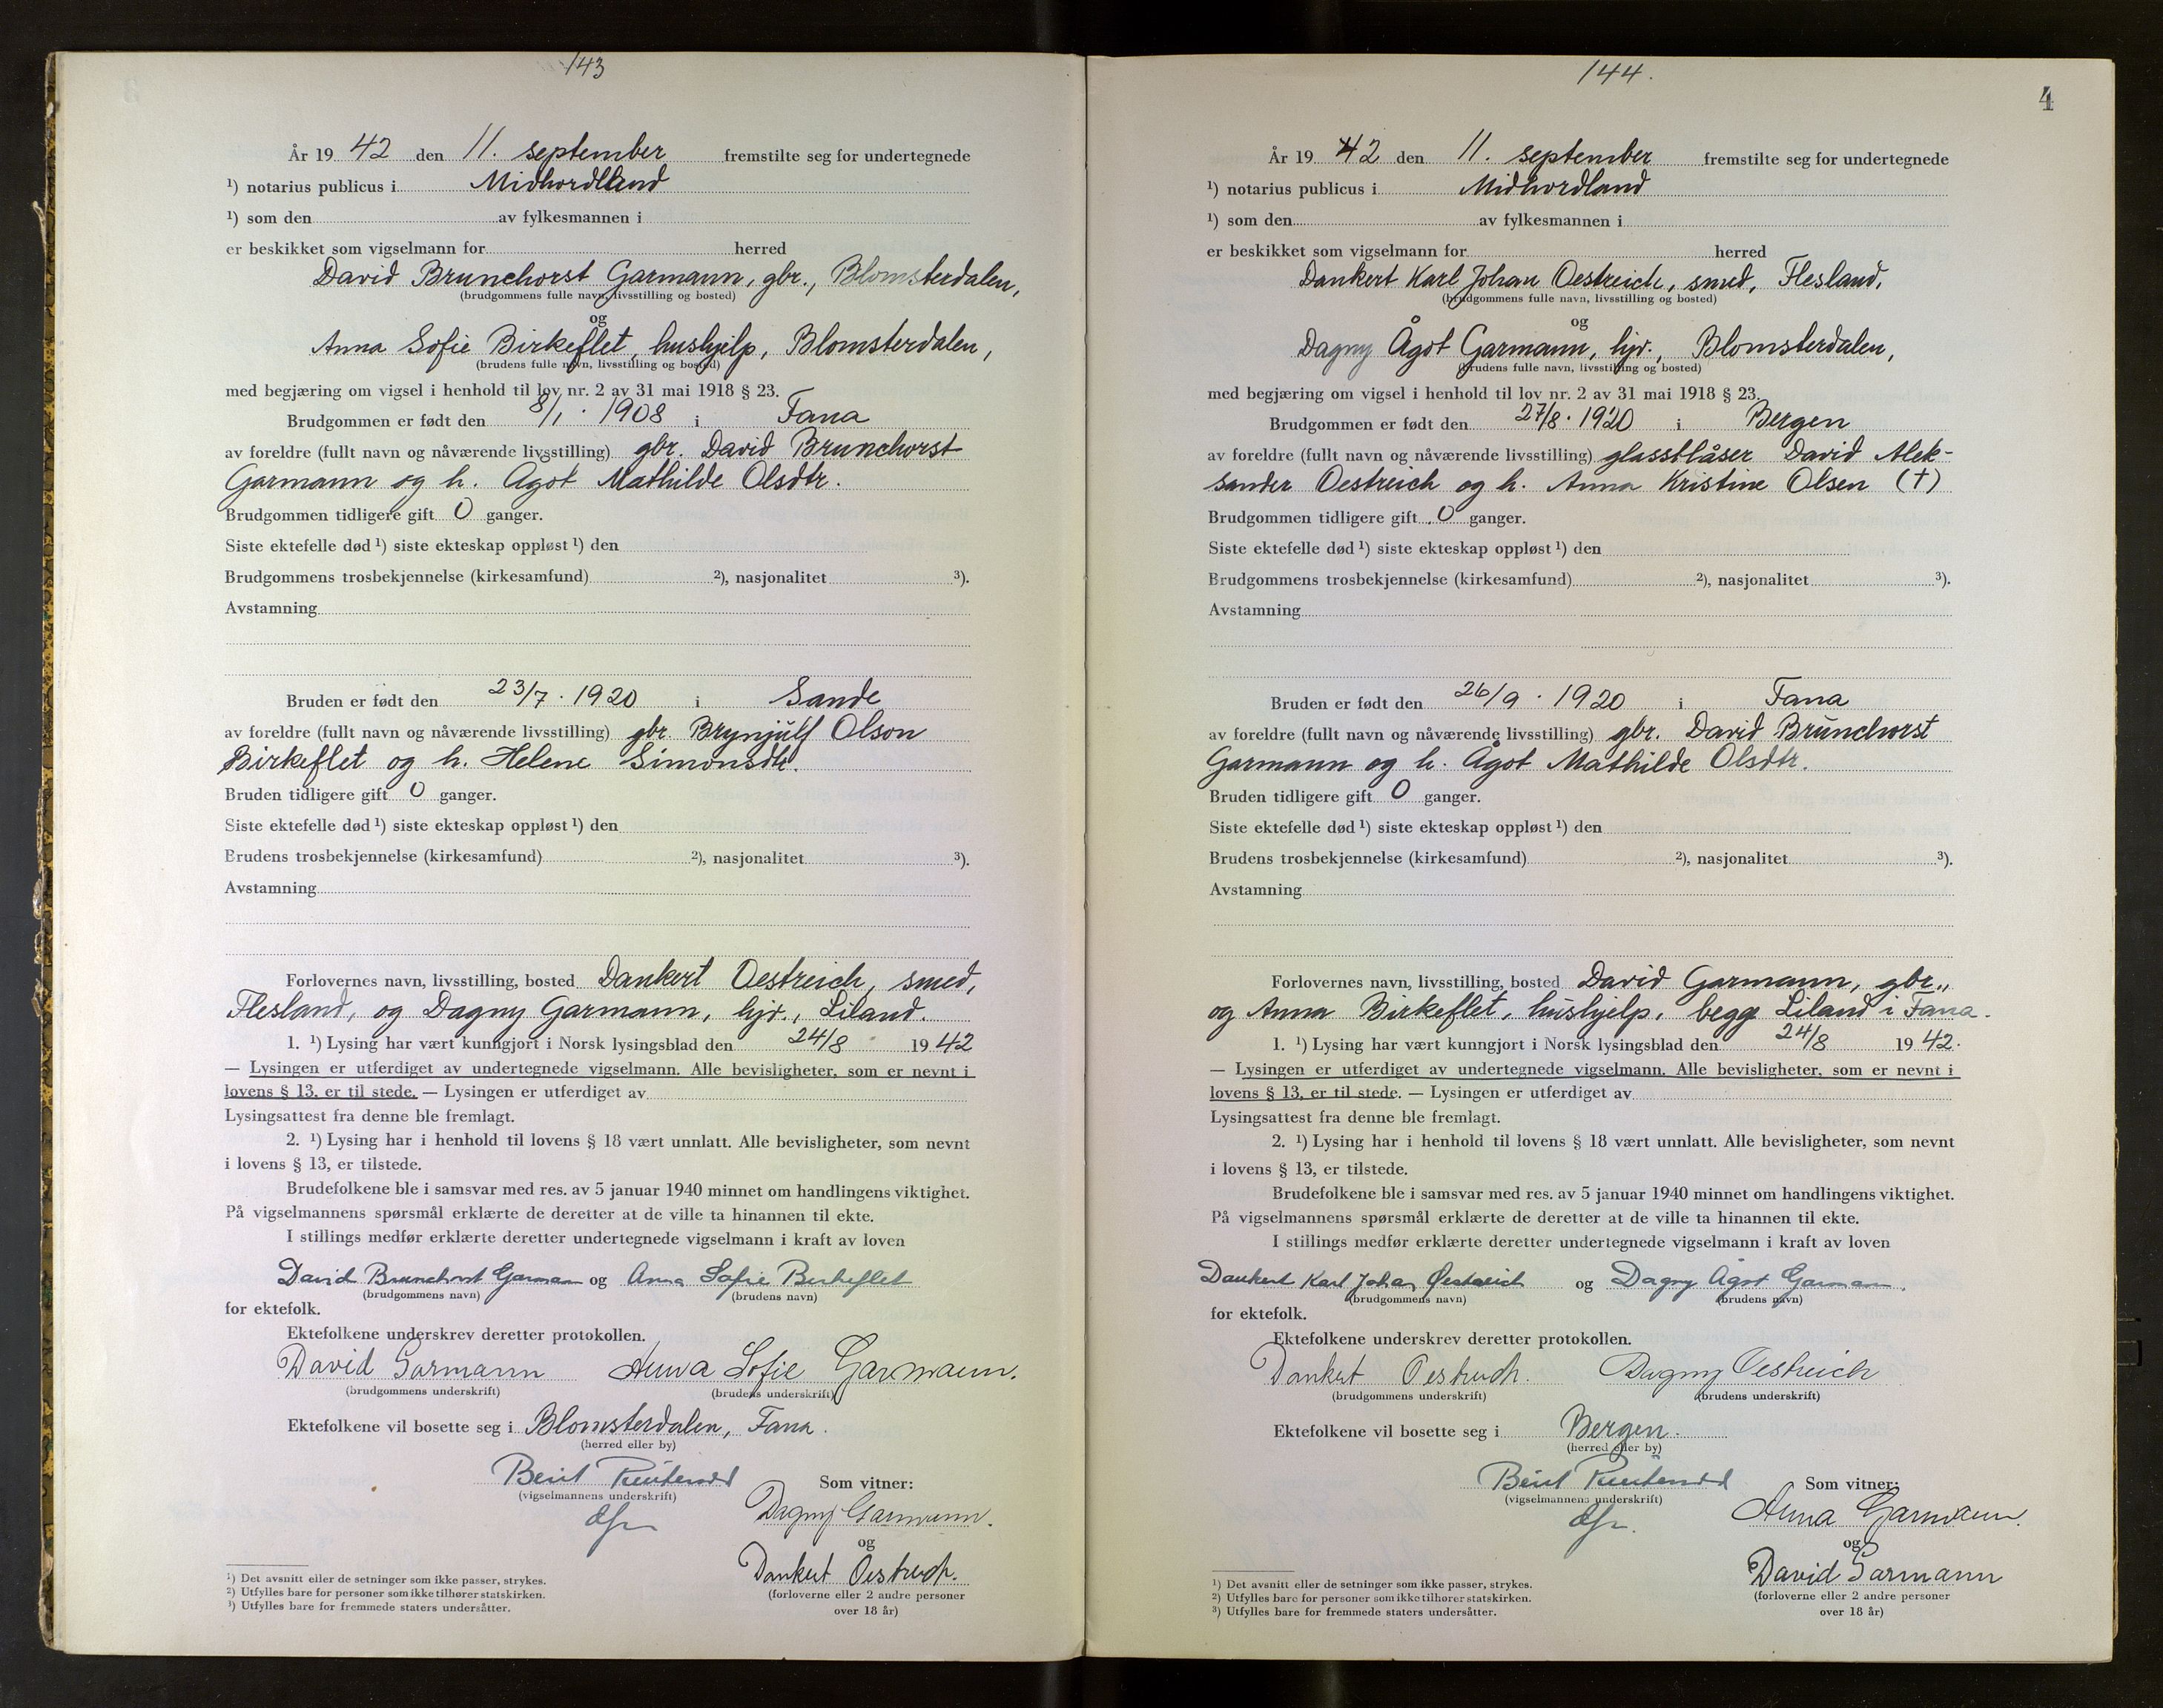 143
År 19 42 den 11. september fremstilte seg for undertegnede
¹) notarius publicus i Midhordland
¹) som den av fylkesmannen i
er beskikket som vigselmann for herred
David Brunchorst Garmann, gbr., Blomsterdalen,
(brudgommens fulle navn, livsstilling og bosted)
og
Anna Sofie Birkeflet, hushjelp, Blomsterdalen,
(brudens fulle navn, livsstilling og bosted)
med begjæring om vigsel i henhold til lov nr. 2 av 31 mai 1918 § 23.
Brudgommen er født den 8/1. 1908 i Fana
av foreldre (fullt navn og nåværende livsstilling) gbr. David Brunchorst
Garmann og h. Ågot Mathilde Olsdtr.
Brudgommen tidligere gift 0 ganger.
Siste ektefelle død ¹) siste ekteskap oppløst ¹) den
Brudgommens trosbekjennelse (kirkesamfund) ²), nasjonalitet ³).
Avstamning
Bruden er født den 23/7. 1920 i Sande
av foreldre (fullt navn og nåværende livsstilling) gbr. Brynjulf Olson
Birkeflet og h. Helene Simonsdtr.
Bruden tidligere gift 0 ganger.
Siste ektefelle død ¹) siste ekteskap oppløst ¹) den
Brudens trosbekjennelse (kirkesamfund) ²), nasjonalitet ³).
Avstamning
Forlovernes navn, livsstilling, bosted Dankert Oestreich, smed,
Flesland, og Dagny Garmann, hjv., Liland.
1. ¹) Lysing har vært kunngjort i Norsk lysingsblad den 24/8 19 42
— Lysingen er utferdiget av undertegnede vigselmann. Alle bevisligheter, som er nevnt i
lovens § 13, er til stede. — Lysingen er utferdiget av
Lysingsattest fra denne ble fremlagt.
2. ¹) Lysing har i henhold til lovens § 18 vært unnlatt. Alle bevisligheter, som nevnt
i lovens § 13, er tilstede.
Brudefolkene ble i samsvar med res. av 5 januar 1940 minnet om handlingens viktighet.
På vigselmannens spørsmål erklærte de deretter at de ville ta hinannen til ekte.
I stillings medfør erklærte deretter undertegnede vigselmann i kraft av loven
David Brunchorst Garmann og Anna Sofie Birkeflet
(brudgommens navn) (brudens navn)
for ektefolk.
Ektefolkene underskrev deretter protokollen.
David Garmann Anna Sofie Garmann.
(brudgommens underskrift) (brudens underskrift)
Ektefolkene vil bosette seg i Blomsterdalen, Fana.
(herred eller by)
(vigselmannens underskrift)
Som vitner:
Dagny Garmann.
og
Dankert Oestreich.
(forloverne eller 2 andre personer
over 18 år)
¹) Det avsnitt eller de setninger som ikke passer, strykes.
²) Utfylles bare for personer som ikke tilhører statskirken.
³) Utfylles bare for fremmede staters undersåtter.
144.
4
År 19 42 den 11. september fremstilte seg for undertegnede
¹) notarius publicus i Midhordland
¹) som den av fylkesmannen i
er beskikket som vigselmann for herred
Dankert Karl Johan Oestreich, smed, Flesland,
(brudgommens fulle navn, livsstilling og bosted)
og
Dagny Ågot Garmann, hjv., Blomsterdalen,
(brudens fulle navn, livsstilling og bosted)
med begjæring om vigsel i henhold til lov nr. 2 av 31 mai 1918 § 23.
Brudgommen er født den 27/8. 1920 i Bergen
av foreldre (fullt navn og nåværende livsstilling) glassblåser David Alek-
sander Oestreich og h. Anna Kristine Olsen (†)
Brudgommen tidligere gift 0 ganger.
Siste ektefelle død ¹) siste ekteskap oppløst ¹) den
Brudgommens trosbekjennelse (kirkesamfund) ²), nasjonalitet ³).
Avstamning
Bruden er født den 26/9. 1920 i Fana
av foreldre (fullt navn og nåværende livsstilling) gbr. David Brunchorst
Garmann og h. Ågot Mathilde Olsdtr.
Bruden tidligere gift 0 ganger.
Siste ektefelle død ¹) siste ekteskap oppløst ¹) den
Brudens trosbekjennelse (kirkesamfund) ²), nasjonalitet ³).
Avstamning
Forlovernes navn, livsstilling, bosted David Garmann, gbr.,
og Anna Birkeflet, hushjelp, begge Liland i Fana.
1. ¹) Lysing har vært kunngjort i Norsk lysingsblad den 24/8 19 42.
— Lysingen er utferdiget av undertegnede vigselmann. Alle bevisligheter, som er nevnt i
lovens § 13, er til stede. — Lysingen er utferdiget av
Lysingsattest fra denne ble fremlagt.
2. ¹) Lysing har i henhold til lovens § 18 vært unnlatt. Alle bevisligheter, som nevnt
i lovens § 13, er tilstede.
Brudefolkene ble i samsvar med res. av 5 januar 1940 minnet om handlingens viktighet.
På vigselmannens spørsmål erklærte de deretter at de ville ta hinannen til ekte.
I stillings medfør erklærte deretter undertegnede vigselmann i kraft av loven
Dankert Karl Johan Oestreich og Dagny Ågot Garmann,
(brudgommens navn) (brudens navn)
for ektefolk.
Ektefolkene underskrev deretter protokollen.
Dankert Oestreich. Dagny Oestreich
(brudgommens underskrift) (brudens underskrift)
Ektefolkene vil bosette seg i Bergen.
(herred eller by)
(vigselmannens underskrift)
Som vitner:
Anna Garmann.
og
David Garmann
(forloverne eller 2 andre personer
over 18 år)
¹) Det avsnitt eller de setninger som ikke passer, strykes.
²) Utfylles bare for personer som ikke tilhører statskirken.
³) Utfylles bare for fremmede staters undersåtter.